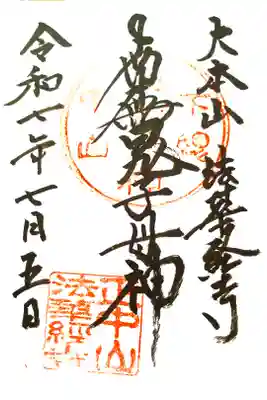 大本山 法華経寺
鬼子母神
令和七年七月五日
正中山
法華経寺